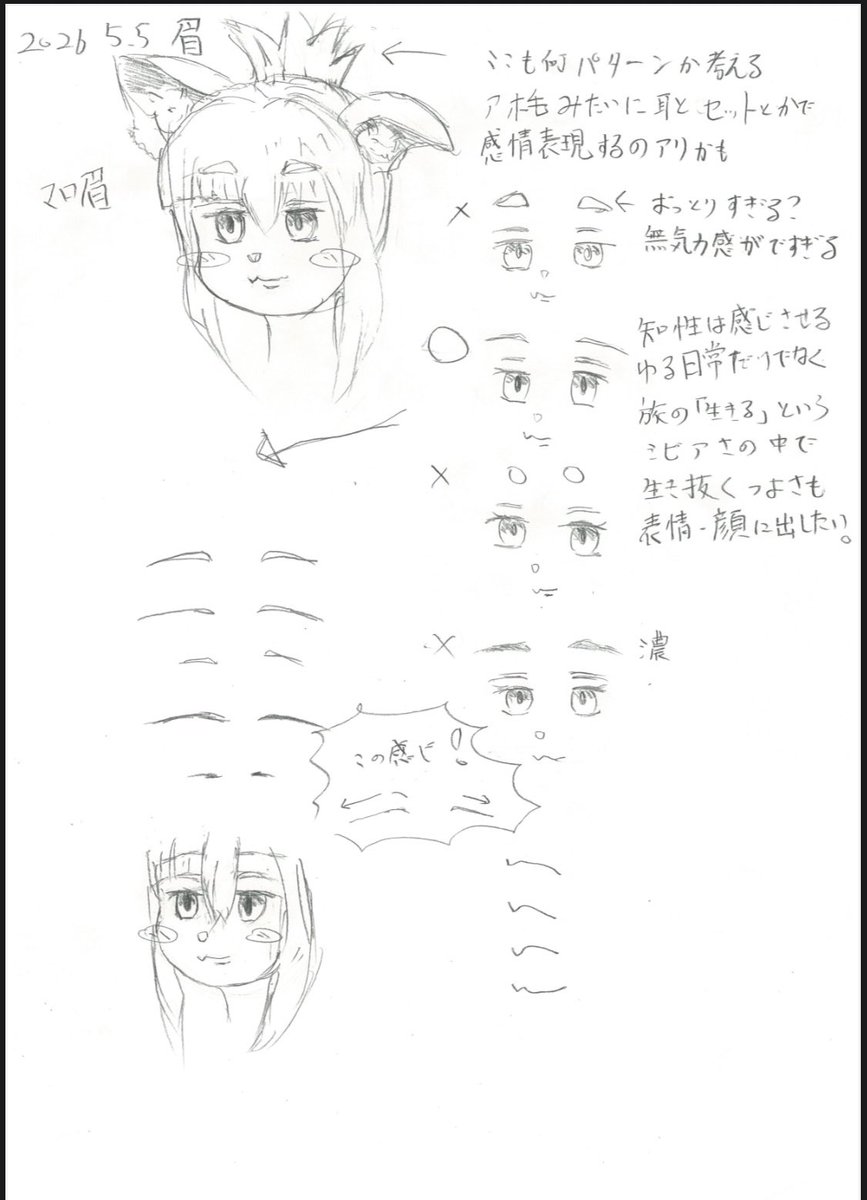 2026 5.5 眉
ここも何パターンか考える
アホ毛みたいに耳とセットとかで
感情表現するのアリかも
マロ眉
× ← おっとりすぎる?
無気力感がですぎる
○
知性は感じさせる
ゆる日常だけでなく
旅の「生きる」という
シビアさの中で
生き抜くつよさも
表情-顔に出したい。
×
× 濃
この感じ!